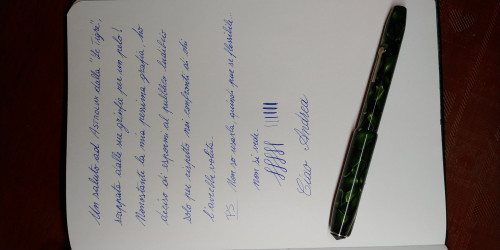 Un saluto ad Antonio dalla "Le Tigri",
scappata dalle sue grinfie per un pelo!
Nonostante la mia pessima grafia, ho
deciso di espormi al pubblico ludibrio
solo per rispetto nei confronti di chi
l'avrebbe voluta.
PS Non so usarla, quindi pur se flessibile
non si vede.
Ciao Andrea